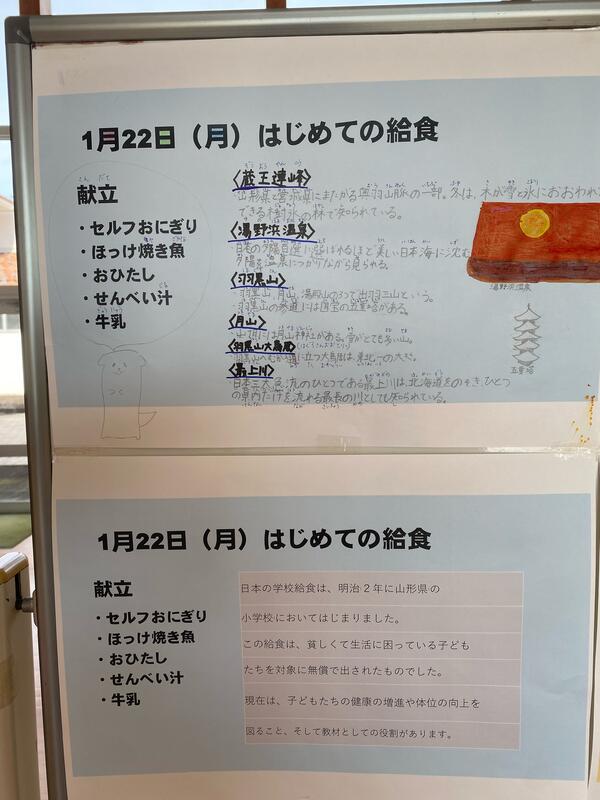 1月22日（月）はじめての給食
献立
こんだて
・セルフおにぎり
・ほっけ焼き魚
・おひたし
・せんべい汁
・牛乳
〈蔵王連峰〉
山形県と宮城県にまたがる奥羽山脈の一部。冬は、木が雪と氷におおわれ
できる樹氷の林で知られている。
〈湯野浜温泉〉
日本の夕陽百選に選ばれるほど美しい日本海に沈む
夕陽を温泉につかりながら見られる。
〈羽黒山〉
・羽黒山、月山、湯殿山の3つで出羽三山という。
・羽黒山の参道には国宝の五重塔がある。
〈月山〉
・山頂には月山神社がある。雪がとても多い山。
〈羽黒山大鳥居〉
・羽黒山へむかい道に立つ大鳥居は、東北一の大きさ。
〈最上川〉
・日本三大急流のひとつである最上川は、北海道をのぞき、ひとつ
の県内だけを流れる最長の川としても知られている。
湯野浜温泉
五重塔
1月22日（月）はじめての給食
献立
・セルフおにぎり
・ほっけ焼き魚
・おひたし
・せんべい汁
・牛乳
日本の学校給食は、明治２年に山形県の
小学校においてはじまりました。
この給食は、貧しくて生活に困っている子ども
たちを対象に無償で出されたものでした。
現在は、子どもたちの健康の増進や体位の向上を
図ること、そして教材としての役割があります。